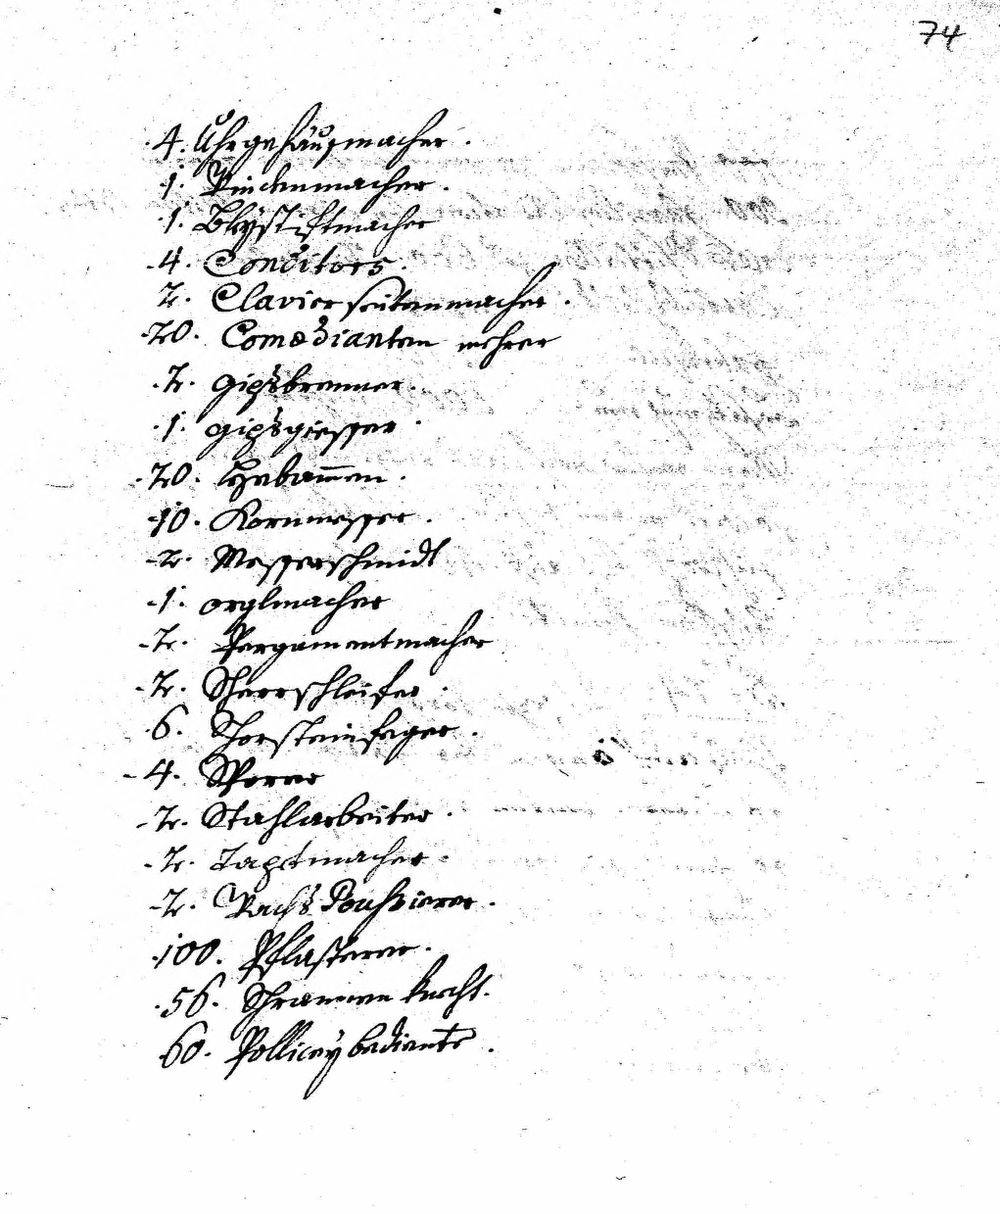 74
4. Uhrgehäußmacher.
1. Windenmacher.
1. Bleystiftmacher
4. Conditors.
2. Clavier seitenmacher.
20. Comedianten mehrer
2. gipsbrenner.
1. gipsgiesser.
20. Hebam̅en.
10. Kornmesser.
2. Messerschmidt
1. orglmacher
2. Pergamentmacher
2. Scherrschleifer.
6. Schorsteinfeger.
4. Sporrer
2. Stahlarbeiter.
2. Tapetmacher.
2. Wachs Poußierer.
100. Pflasterer.
56. Schrannen knecht.
60. Pollicey bediente.